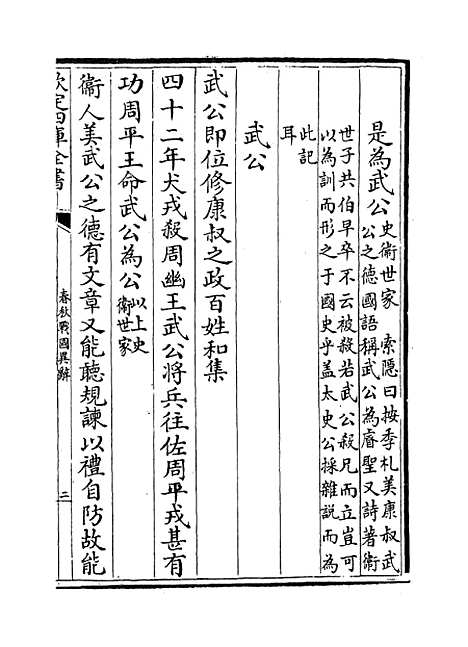 是為武公史衞世家 索隱曰按季札美康叔武
公之德國語稱武公為睿聖又詩著衞
世子共伯早卒不云被殺若武公殺兄而立豈可
以為訓而形之于國史乎蓋太史公採雜説而為
此記
耳
武公
武公即位修康叔之政百姓和集
四十二年犬戎殺周幽王武公將兵往佐周平戎甚有
功周平王命武公為公以上史
衞世家
衞人美武公之德有文章又能聽規諫以禮自防故能
欽定四庫全書
春秋戰國異辭
三